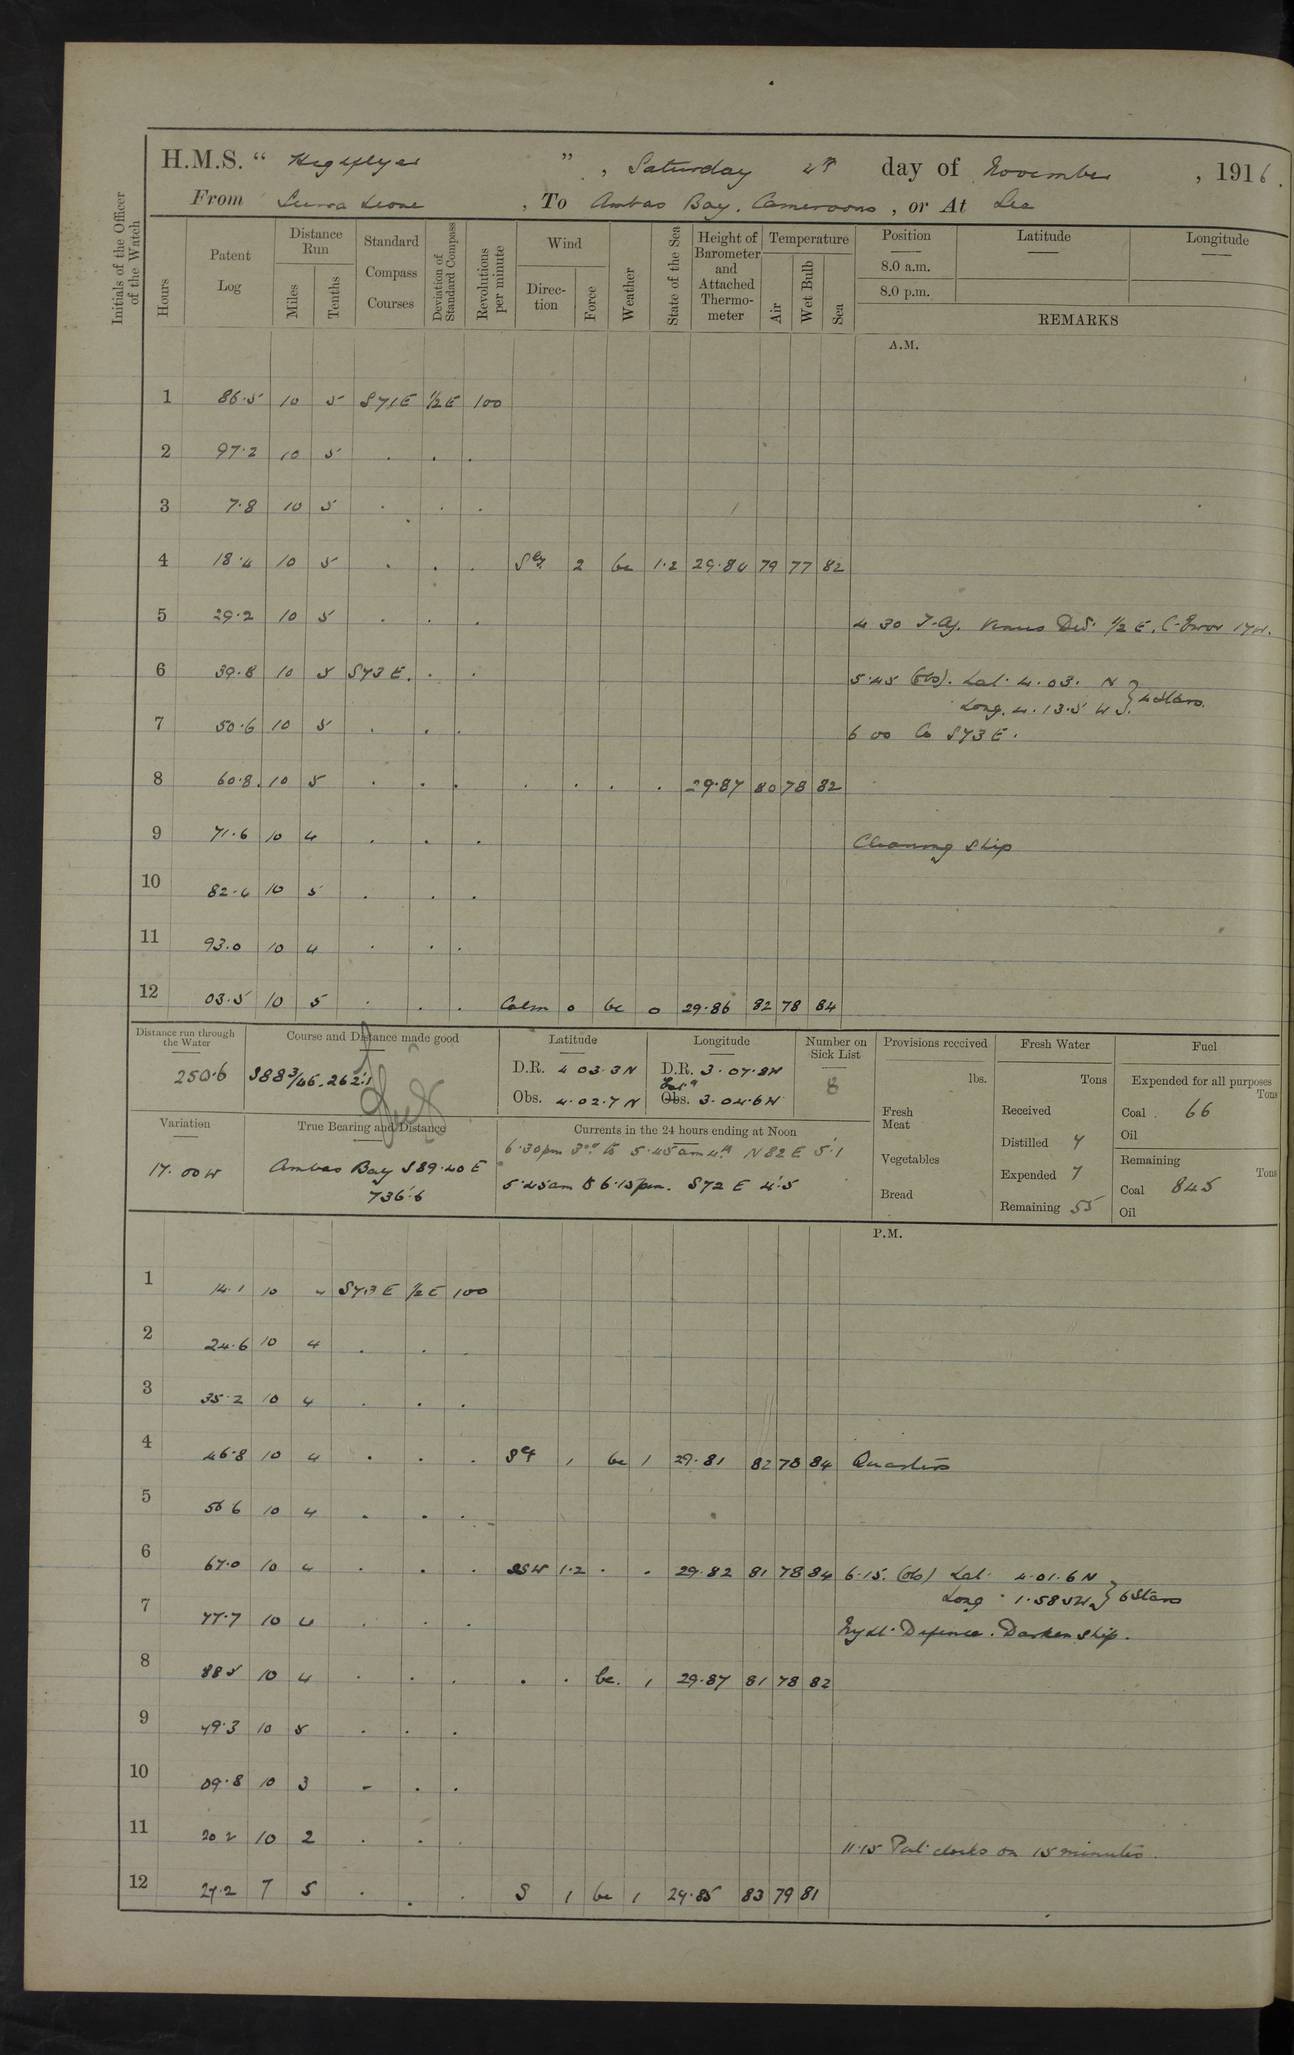 H.M.S. " Highflyer ", Saturday 4th day of November, 1916.
From Sierra Leone, To Ambas Bay. Cameroons, or At Sea
Initials of the Officer of the Watch
Hours Patent Log Distance Run Miles Tenths Standard Compass Courses Deviation of Standard Compass Revolutions per minute Wind Direction Force Weather State of the Sea Height of Barometer and Attached Thermometer Temperature Air Wet Bulb Sea Position Latitude Longitude
8.0 a.m.
8.0 p.m.
REMARKS
A.M.
1 86.5 10 5 S71E 1/2 E 100
2 97.2 10 5 . . .
3 7.8 10 5 . . .
4 18.4 10 5 . . . Sly 2 bc 1.2 29.84 79 77 82
5 29.2 10 5 . . . 4 30 T. Az. Venus Dev. 1/2 E. C. Error 17W.
6 39.8 10 5 S73E. . . 5.45 (obs). Lat. 4.03. N
Long. 4.13.5 W } 4 Stars.
7 50.6 10 5 . . . 6 00 Co S73E.
8 60.8 10 5 . . . . . . . 29.87 80 78 82
9 71.6 10 4 . . . Cleaning ship
10 82.4 10 5 . . .
11 93.0 10 4 . . .
12 03.5 10 5 . . . Calm 0 bc 0 29.86 82 78 84
Distance run through the Water
250.6
Course and Distance made good
S88 3/4 E. 262.1
Latitude
D.R. 4 03.3N
Obs. 4.02.7N
Longitude
D.R. 3.07.8W
Obs. 3.04.6W
Number on Sick List
8
Provisions received
lbs.
Fresh Meat
Vegetables
Bread
Fresh Water
Tons
Received
Distilled 7
Expended 7
Remaining 55
Fuel
Expended for all purposes
Tons
Coal 66
Oil
Remaining
Tons
Coal 845
Oil
Variation
17.00W
True Bearing and Distance
Ambas Bay S89.40E
736.6
Currents in the 24 hours ending at Noon
6.30pm 3rd to 5.45am 4th N82E 5.1
5.45am to 6.15pm. S72E 4.5
P.M.
1 14.1 10 4 S73E 1/2 E 100
2 24.6 10 4 . . .
3 35.2 10 4 . . .
4 46.8 10 4 . . . Sly 1 bc 1 29.81 82 78 84 Quarters
5 56 6 10 4 . . .
6 67.0 10 4 . . . SSW 1.2 . . 29.82 81 78 84 6.15. (obs) Lat. 4.01.6N
Long. 1.58.5W } 6 Stars
7 77.7 10 4 . . . Night Defence. Darken ship.
8 88 5 10 4 . . . . . bc. 1 29.87 81 78 82
9 49.3 10 5 . . .
10 09.8 10 3 . . .
11 20 2 10 2 . . . 11.15 Put clocks on 15 minutes.
12 27.2 7 5 . . . S 1 bc 1 29.85 83 79 81